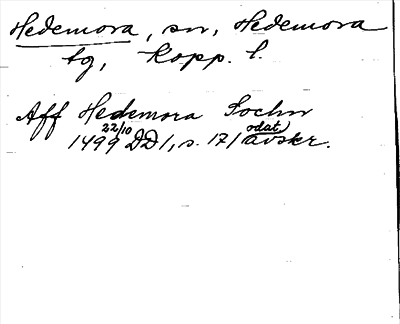 Hedemora, sn, Hedemora
tg, Kopp. l.
Aff Hedemora Sochn
1499 22/10 DD1, s. 171 odat. avskr.